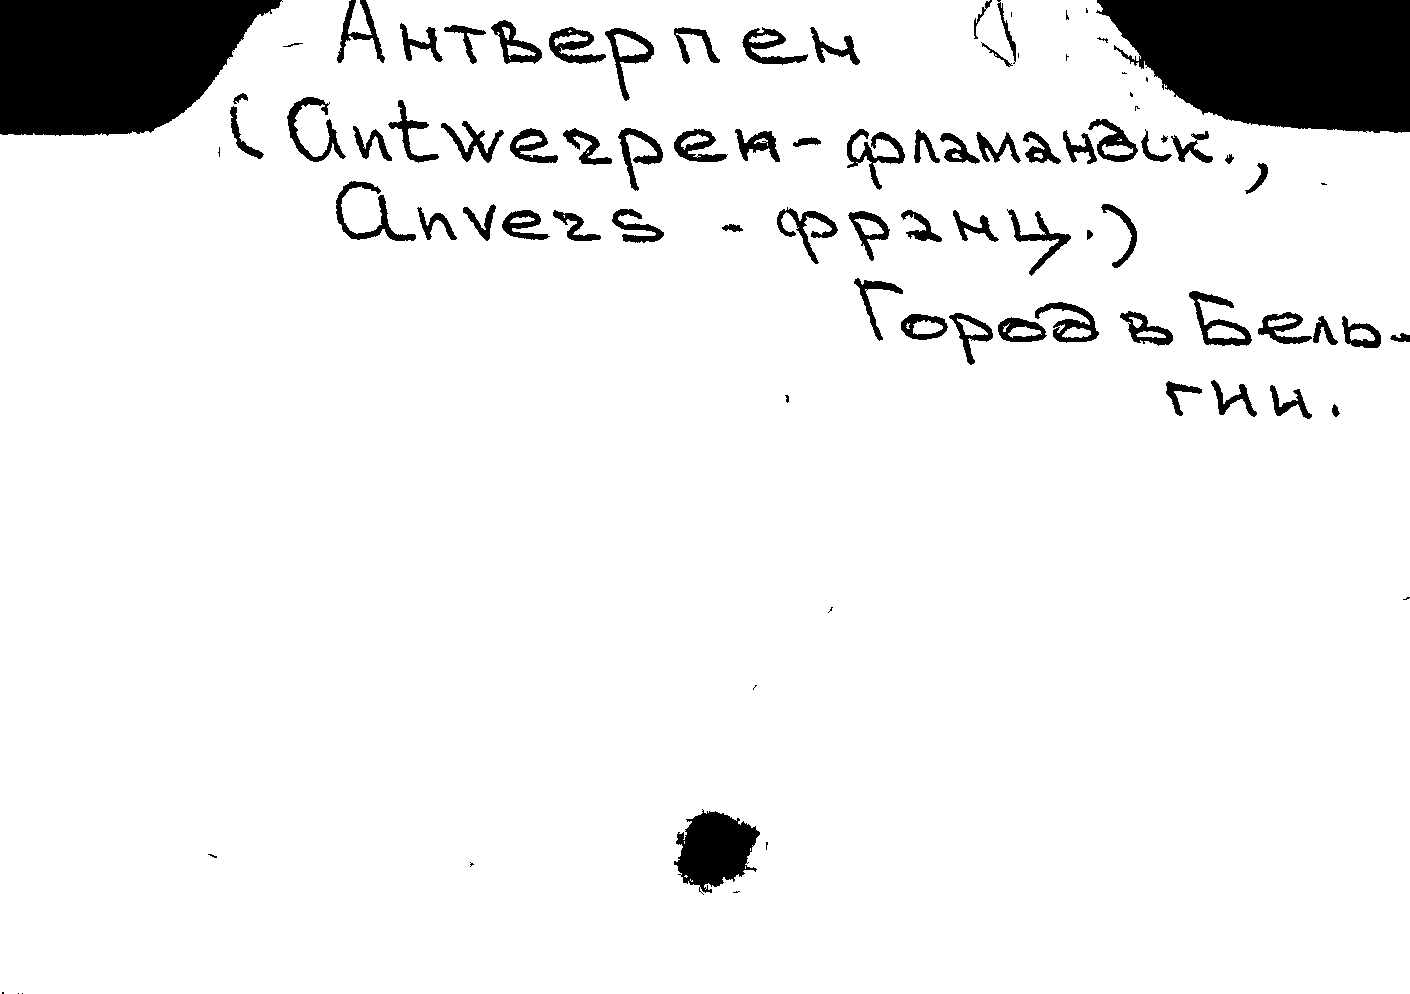 Антверпен
(Antwerpen - фламандск.,
Anvers - франц.)
Город в Бель-
гии.